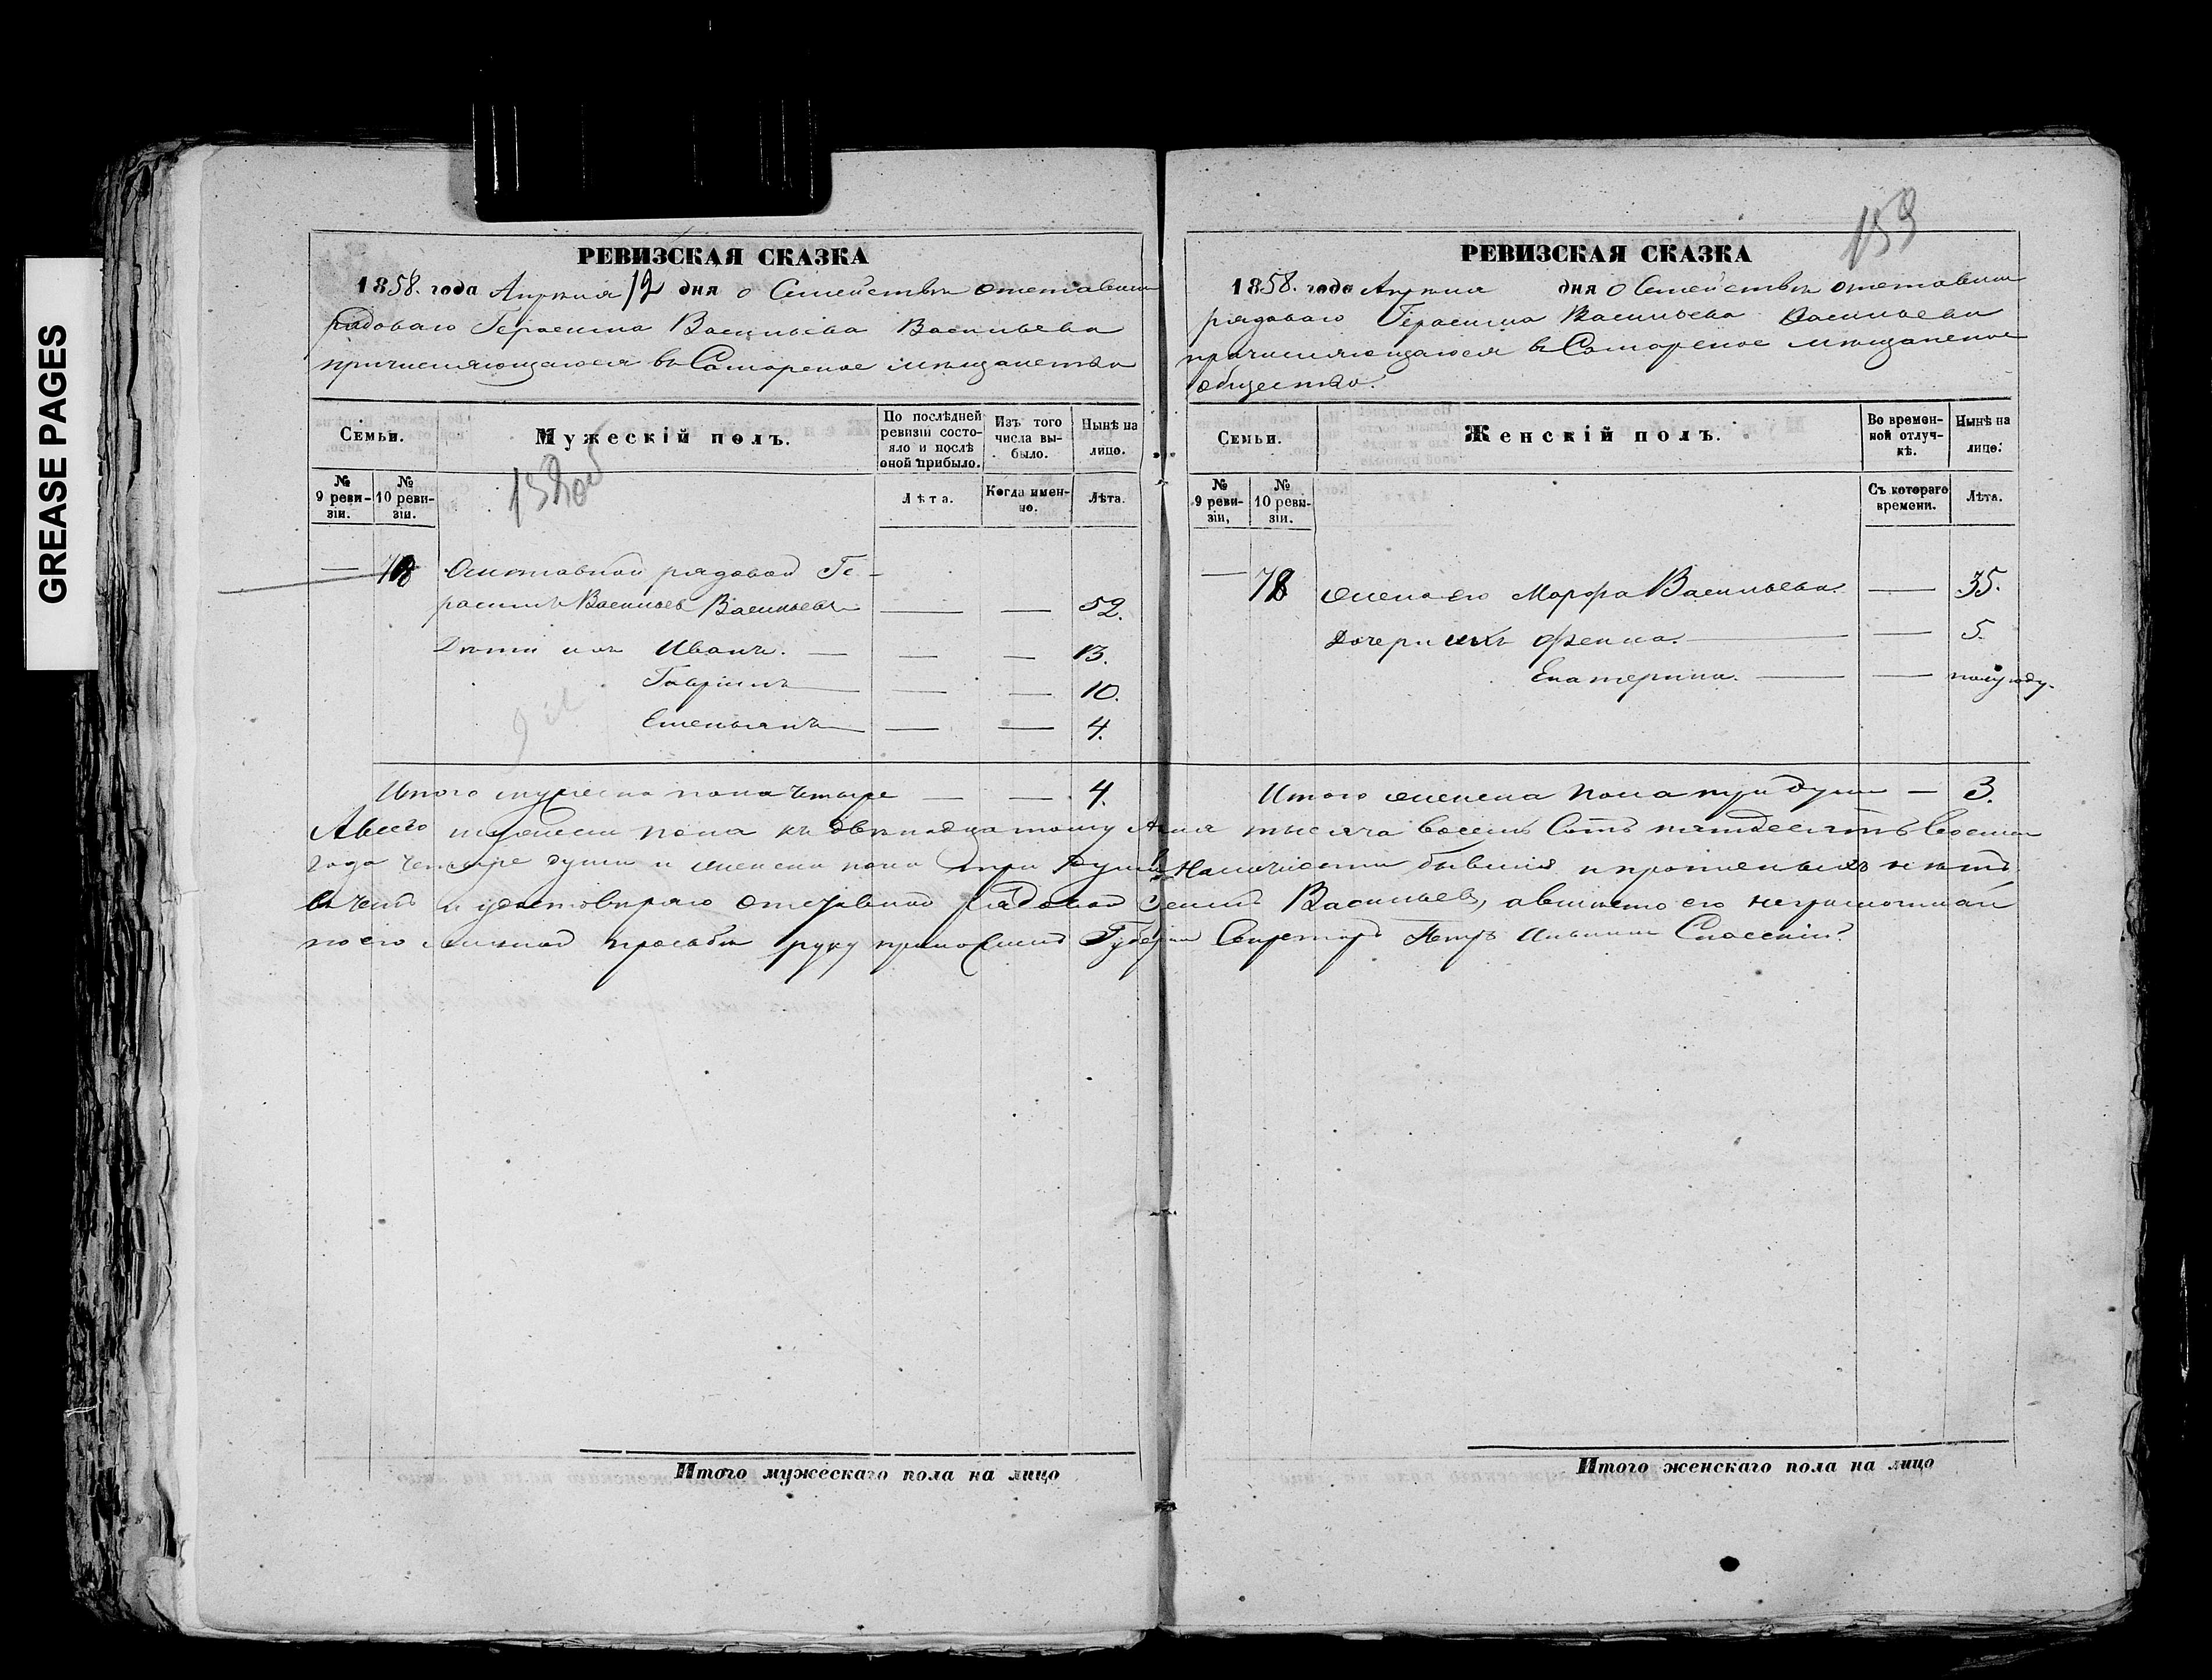 GREASE PAGES
РЕВИЗСКАЯ СКАЗКА
1858. года Апреля 12 дня о Семействе отставнаго
рядоваго Герасима Васильева Васильева
причисляющагося въ Самарское мещанство
Семьи.
Мужескій полъ.
По послѣдней ревизіи состояло и послѣ оной прибыло.
Изъ того числа выбыло.
Нынѣ на лицо.
№ 9 ревизіи.
№ 10 ревизіи.
Лѣта.
Когда именно.
Лѣта.
— 78 Отставной рядовой Ге-
расимъ Васильевъ Васильевъ — — 52.
Дѣти ихъ Иванъ. — — — 13.
Гаврiилъ — — 10.
Емельянъ — — 4.
Итого мужеска пола четыре — — 4.
РЕВИЗСКАЯ СКАЗКА
159
1858. года Апреля дня о Семействе отставнаго
рядоваго Герасима Васильева Васильева
причисляющагося въ Самарское мещанское
общество.
Семьи.
Женскій полъ.
Во временной отлучкѣ.
Нынѣ на лицо.
№ 9 ревизіи,
№ 10 ревизіи.
Съ котораго времени.
Лѣта.
— 78 жена его Марфа Васильева — 35.
Дочери ихъ Фекла. — — 5.
Екатерина. — — полугоду.
Итого женска пола три души — 3.
А всего мужеска пола къ двенадцатому Апреля тысяча восемь сотъ пятдесятъ восьмаго
года четыре души и женска пола три души
въ чемъ и удостоверяю отставной рядовой Васильевъ, а вместо его неграмотнаго
по его личной просьбе руку приложилъ Губерн Секретарь Петръ Ильинъ Спасскій.
Итого мужескаго пола на лицо
Итого женскаго пола на лицо